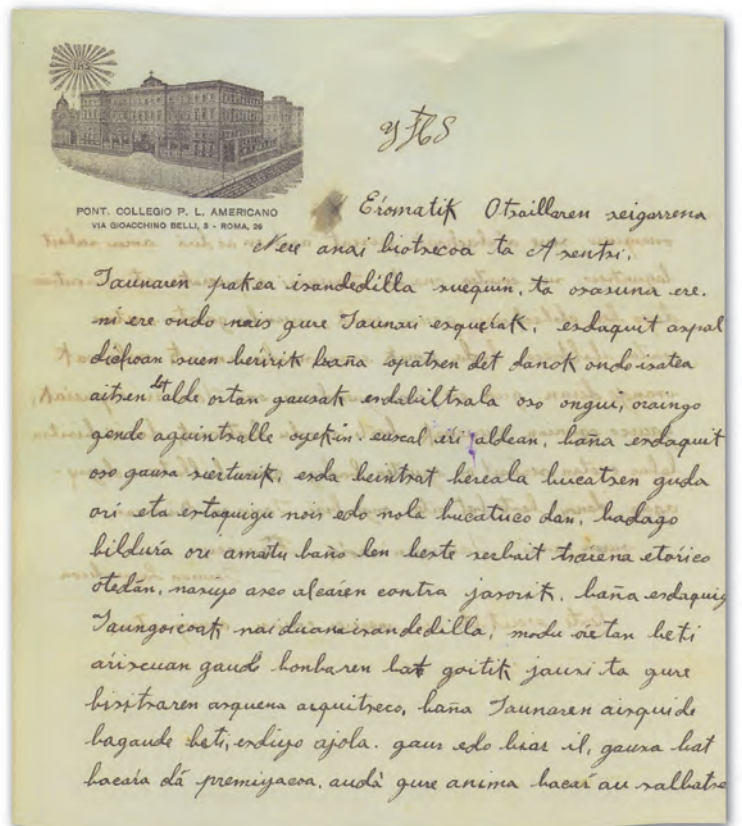 IHS
PONT. COLLEGIO P. L. AMERICANO
VIA GIOACCHINO BELLI, 3 - ROMA, 26
YHS
Erromatik Otsaillaren seigarrena
Nere anai biotzecoa ta Asentsi,
Jaunaren pakea izandedilla zuequin, ta osasuna ere.
ni ere ondo nais gure Jaunari esquerak, esdaquit aspal
dichoan zuen beririk baña opatzen det danok ondo izatea
aitzen det alde ortan gauzak esdabiltzala oso ongui, oraingo
gende aguintzalle oyekin. euzcal eri aldean, baña esdaquit
oso gauza zierturik, esda beintzat bereala bucatzen guda
ori eta eztaquigu nois edo nola bucatuco dan, badago
bildura ori amatu baño len beste zerbait tzarena etorico
otedan, naziyo azco alcaren contra jasorik, baña esdaquigu
Jaungoicoak nai duana izandedilla, modu oietan beti
ariscuan gaude bonbaren bat goitik jauzi ta gure
bizitzaren azquena arquitzeco, baña Jaunaren aizquide
bagaude beti, esdiyo ajola. gaur edo biar il, gauza bat
bacara da premiyacoa, au da gure anima bacar au salbatze